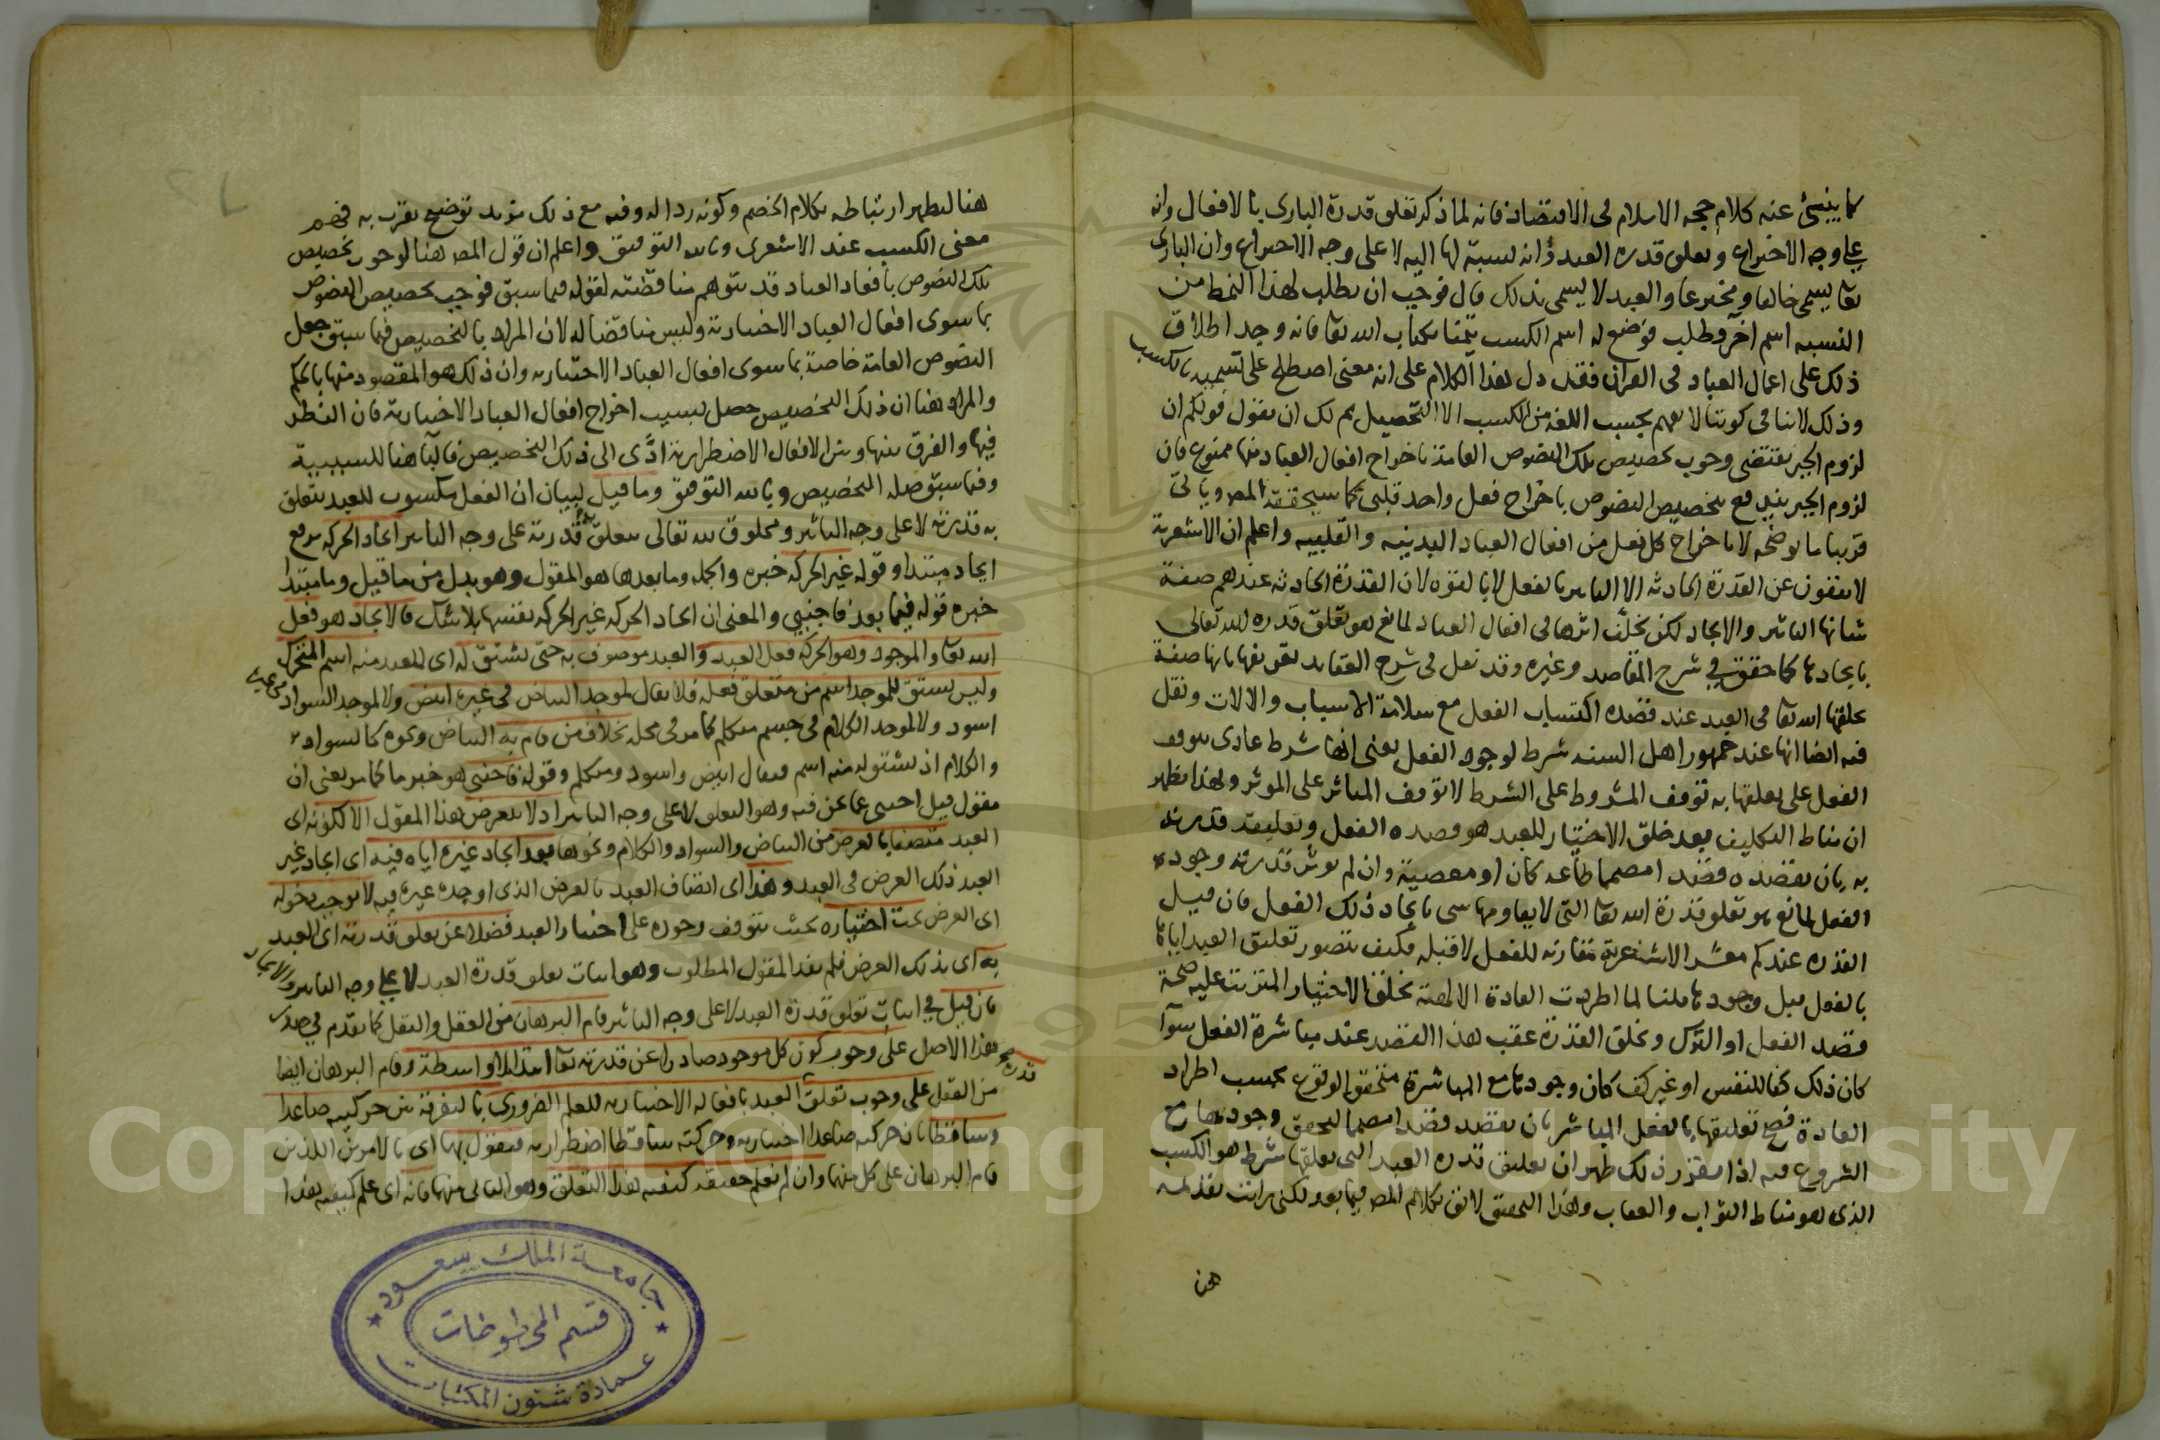 كما ينبئ عنه كلام حجة الاسلام فى الاقتصاد فانه لما ذكر تعلق قدرة البارى بالافعال وانه
على وجه الاختراع وتعلق قدرة العبد وانه نسبة لها اليه لا على وجه الاختراع وان البارى
تعا يسمى خالقا ومخترعا والعبد لا يسمى بذلك قال فوجب ان يطلب لهذا النمط من
النسبة اسم آخر فطلب فوضع له اسم الكسب تيمنا بكتاب الله تعا فانه وجد اطلاق
ذلك على اعمال العباد فى القرآن فقد دل هذا الكلام على انه معنى اصطلح على تسميته بالكسب
وذلك لا ينافى كوننا لا نفهم بحسب اللغة من الكسب الا التحصيل ثم لك ان تقول قولكم ان
لزوم الجبر يقتضى وجوب تخصيص تلك النصوص العامة باخراج افعال العباد منها ممنوع فان
لزوم الجبر يندفع بتخصيص النصوص باخراج فعل واحد قلبى كما سيحققه المص وياتى
قريبا ما يوضحه لا باخراج كل فعل من افعال العباد البدنية والقلبية واعلم ان الاشعرية
لا ينفون عن القدرة الحادثة الا التاثير بالفعل لا بالقوة لان القدرة الحادثة عندهم صفة
شانها التاثير والايجاد لكن تخلف اثرها فى افعال العباد لمانع هو تعلق قدرة الله تعالى
بايجادها كما حقق فى شرح المقاصد وغيره وقد نقل فى شرح العقايد تعريفها بانها صفة
يخلقها الله تعا فى العبد عند قصده اكتساب الفعل مع سلامة الاسباب والالات ونقل
فيه ايضا انها عند جمهور اهل السنة شرط لوجود الفعل يعنى انها شرط عادى يتوقف
الفعل على تعلقها به توقف المشروط على الشرط لا توقف المتاثر على الموثر وبهذا يظهر
ان مناط التكليف بعد خلق الاختيار للعبد هو قصده الفعل وتعليقه قدرته
به بان يقصده قصدا مصمما طاعة كان او معصية وان لم يوثر قدرته وجود
الفعل لمانع هو تعلق قدرة الله تعا التى لا يقاومها شى بايجاد ذلك الفعل فان قيل
القدرة عندكم معشر الاشعرية مقارنة للفعل لا قبله فكيف يتصور تعليق العبد اياها
بالفعل قبل وجودها قلنا لما اطردت العادة الالهية بخلق الاختيار المترتب عليه صحة
قصد الفعل او الترك وبخلق القدرة عقب هذا القصد عند مباشرة الفعل سوآ
كان ذلك كفا للنفس او غير كف كان وجودها مع المباشرة متحقق الوقوع بحسب اطراد
العادة فصح تعليقها بالفعل المباشر بان يقصد قصدا مصمما لتحقق وجودها مع
الشروع فيه اذا تقرر ذلك ظهر ان تعليق قدرة العبد التى تعلقها شرط هو الكسب
الذى هو مناط الثواب والعقاب وهذا التحقيق لائق بكلام المص فيما بعد لكنى رايت تقديمه
هنا
هنا ليظهر ارتباطه بكلام الخصم وكونه ردا له وفيه مع ذلك مزيد توضيح يقرب به فهم
معنى الكسب عند الاشعرى وبالله التوفيق واعلم ان قول المص هنا لوجوب تخصيص
تلك النصوص بافعال العباد قد يتوهم مناقضته لقوله فيما سبق فوجب تخصيص النصوص
بما سوى افعال العباد الاختيارية وليس مناقضا له لان المراد بالتخصيص فيما سبق جعل
النصوص العامة خاصة بما سوى افعال العباد الاختيارية وان ذلك هو المقصود منها بالحكم
والمراد هنا ان ذلك التخصيص حصل بسبب اخراج افعال العباد الاختيارية فان النظر
فيها والفرق بينها وبين الافعال الاضطرارية ادَّى الى ذلك التخصيص فالبآ هنا للسببية
وفيما سبق صلة التخصيص وبالله التوفيق وما قيل لبيان ان الفعل مكسوب للعبد بتعلق
به قدرته لا على وجه التاثير ومخلوق لله تعالى بتعلق قدرته على وجه التاثير ايجاد الحركة برفع
ايجاد مبتدا وقوله غير الحركة خبره والجملة وما بعدها هو المقول وهو بدل من ما قيل وما مبتدا
خبره قوله فيما بعد فاجنبى والمعنى ان ايجاد الحركة غير الحركة نفسها بلا شك فالايجاد هو فعل
الله تعا والموجود وهو الحركة فعل العبد والعبد موصوف به حتى يشتق له اى للعبد منه اسم المتحرك
وليس يشتق للموجد اسم من متعلق فعله فلا يقال لموجد البياض فى غيره ابيض ولا لموجد السواد فى غيره
اسود ولا لموجد الكلام فى جسم متكلم كما مر فى محله بخلاف من قام به البياض ونحوه كالسواد
والكلام اذ يشتق له منه اسم فيقال ابيض واسود ومتكلم وقوله فاجنبى هو خبر ما كما مر يعنى ان
مقول قيل اجنبى عما نحن فيه وهو التعلق لا على وجه التاثير اذ لا يتعرض هذا المقول الا لكونه اى
العبد متصفا بالعرض من البياض والسواد والكلام ونحوها بعد ايجاد غيره اياه فيه اى ايجاد غير
العبد ذلك العرض فى العبد وهذا اى اتصاف العبد بالعرض الذى اوجده غيره فيه لا يوجب دخوله
اى العرض تحت اختياره بحيث يتوقف وجوده على اختيار العبد فضلا عن تعلق قدرته اى العبد
به اى بذلك العرض فلم يفد المقول المطلوب وهو اثبات تعلق قدرة العبد لا على وجه التاثير والايجاد
فان قيل فى اثبات تعلق قدرة العبد لا على وجه التاثير قام البرهان من العقل والنقل كما تقدم فى صدر
هذا الاصل على وجوب كون كل موجود صادرا عن قدرته تعا ابتدا بلا واسطة وقام البرهان ايضا
من العقل على وجوب تعلق قدرة العبد بافعاله الاختيارية للعلم الضرورى بالتفرقة بين حركتيه صاعدا
وساقطا بان حركته صاعدا اختيارية وحركته ساقطا اضطرارية فنقول بهما اى بالامرين اللذين
قام البرهان على كل منهما وان لم نعلم حقيقة كيفية هذا التعلق وهو الثانى منهما فانه اى علم كيفية هذا
جامعة الملك سعود
قسم المخطوطات
عمادة شئون المكتبات
Copyright © King Saud University